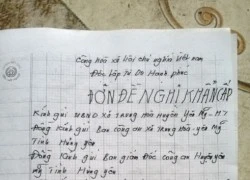 Cộng hoà xã hội chủ nghĩa việt nam
Độc lập Tự Do Hạnh phúc
ĐƠN ĐỀ NGHỊ KHẨN CẤP
Kính gửi UBND xã trung Hoà huyện yên Mỹ - HY
Đồng Kính gửi Ban công an xã trung Hoà - yên Mỹ
Tỉnh Hưng yên
Đồng Kính gửi Ban giám Đốc công an Huyện yên
Mỹ Tỉnh Hưng yên